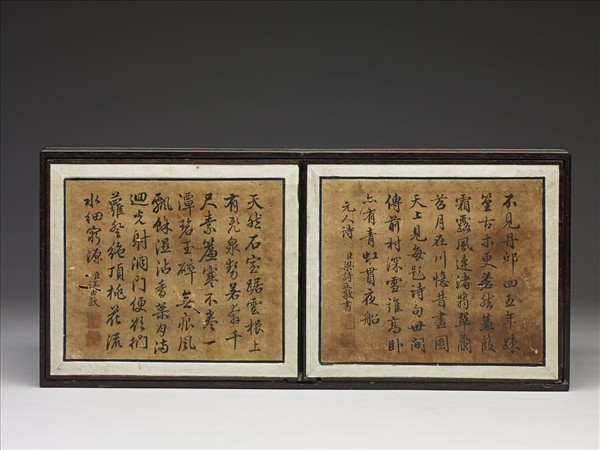 不見丹邱四五年疎
篁古木更蒼然蒹葭
霜露風連渚翡翠蘭
苕月在川憶昔畫圖
天上見每題詩句世間
傳前村深雪誰高臥
亦有青虹貫夜船
元人詩 臣梁詩正敬書
天然石室踞雲根上
有飛泉勢若奔千
尺素簾寒不卷一
潭碧玉碎無痕風
飄餘湿沾香葉月滿
迴光射洞門便欲捫
蘿登絶頂桃花流
水細窮源 臣汪由敦